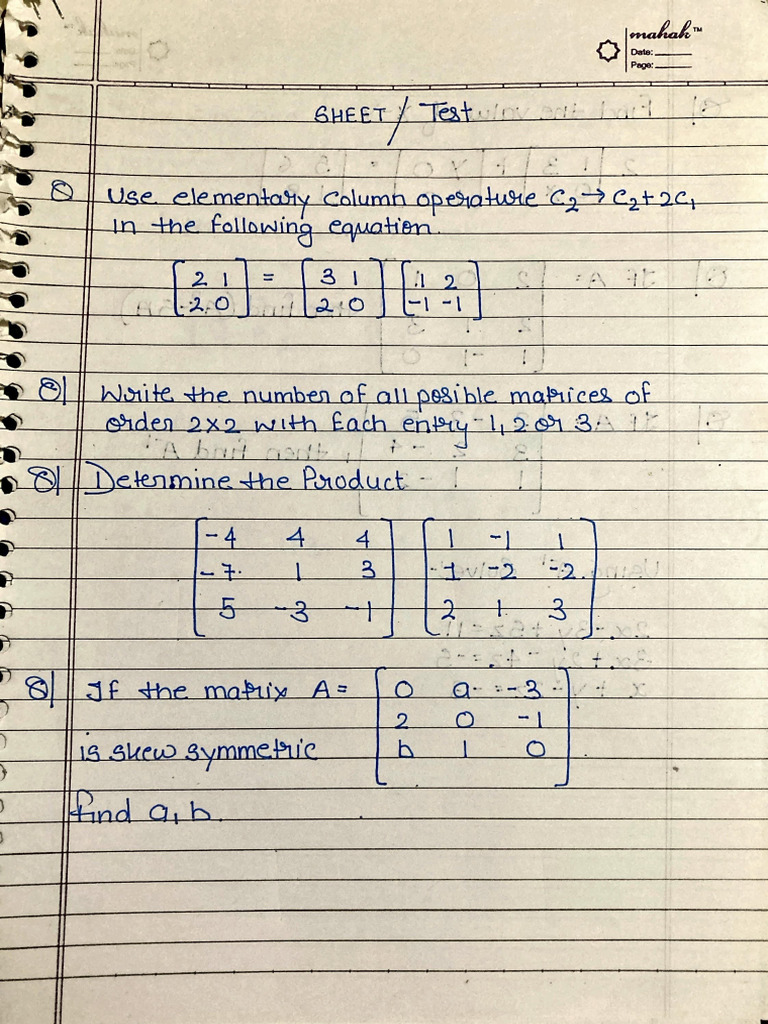 mahak™
Date:
Page:
SHEET / Test
Q Use elementary column operature C₂→C₂+2C₁
in the following equation.
[2 1] = [3 1] [1 2]
[2 0] [2 0] [-1 -1]
Q| Write the number of all posible matrices of
order 2x2 with Each entry 1, 2 or 3
Q| Determine the Product
[-4 4 4] [1 -1 1]
[-7 1 3] [1 -2 -2]
[5 -3 -1] [2 1 3]
Q| If the matrix A = [0 a -3]
[2 0 -1]
is skew symmetric [b 1 0]
find a, b.